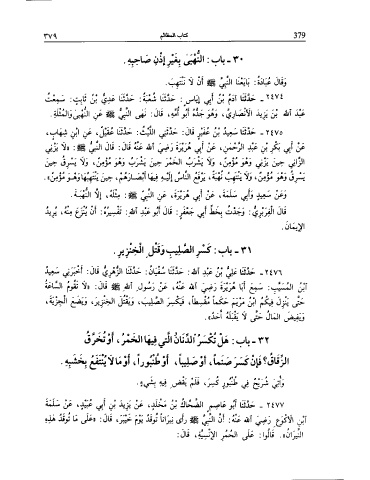 379 كتاب المظالم ٣٧٩
٣٠ - باب: النُّهْبَى بِغَيْرِ إِذْنِ صَاحِبِهِ.
وَقَالَ عُبَادَةُ: بَايَعْنَا النَّبِيَّ ﷺ أَنْ لَا نَنْتَهِبَ.
٢٤٧٤ - حَدَّثَنَا آدَمُ بْنُ أَبِي إِيَاسٍ: حَدَّثَنَا شُعْبَةُ: حَدَّثَنَا عَدِيُّ بْنُ ثَابِتٍ: سَمِعْتُ
عَبْدَ اللهِ بْنَ يَزِيدَ الْأَنْصَارِيَّ، وَهُوَ جَدُّهُ أَبُو أُمِّهِ، قَالَ: نَهَى النَّبِيُّ ﷺ عَنِ النُّهْبَى وَالْمُثْلَةِ.
٢٤٧٥ - حَدَّثَنَا سَعِيدُ بْنُ عُفَيْرٍ قَالَ: حَدَّثَنِي اللَّيْثُ: حَدَّثَنَا عُقَيْلٌ، عَنِ ابْنِ شِهَابٍ،
عَنْ أَبِي بَكْرِ بْنِ عَبْدِ الرَّحْمٰنِ، عَنْ أَبِي هُرَيْرَةَ رَضِيَ اللهُ عَنْهُ قَالَ: قَالَ النَّبِيُّ ﷺ: «لَا يَزْنِي
الزَّانِي حِينَ يَزْنِي وَهُوَ مُؤْمِنٌ، وَلَا يَشْرَبُ الْخَمْرَ حِينَ يَشْرَبُ وَهُوَ مُؤْمِنٌ، وَلَا يَسْرِقُ حِينَ
يَسْرِقُ وَهُوَ مُؤْمِنٌ، وَلَا يَنْتَهِبُ نُهْبَةً، يَرْفَعُ النَّاسُ إِلَيْهِ فِيهَا أَبْصَارَهُمْ، حِينَ يَنْتَهِبُهَا وَهُوَ مُؤْمِنٌ».
وَعَنْ سَعِيدٍ وَأَبِي سَلَمَةَ، عَنْ أَبِي هُرَيْرَةَ، عَنِ النَّبِيِّ ﷺ: مِثْلَهُ، إِلَّا النُّهْبَةَ.
قَالَ الْفِرَبْرِيُّ: وَجَدْتُ بِخَطِّ أَبِي جَعْفَرٍ: قَالَ أَبُو عَبْدِ اللهِ: تَفْسِيرُهُ: أَنْ يُنْزَعَ مِنْهُ، يُرِيدُ
الْإِيمَانَ.
٣١ - باب: كَسْرِ الصَّلِيبِ وَقَتْلِ الْخِنْزِيرِ.
٢٤٧٦ - حَدَّثَنَا عَلِيُّ بْنُ عَبْدِ اللهِ: حَدَّثَنَا سُفْيَانُ: حَدَّثَنَا الزُّهْرِيُّ قَالَ: أَخْبَرَنِي سَعِيدُ
ابْنُ الْمُسَيَّبِ: سَمِعَ أَبَا هُرَيْرَةَ رَضِيَ اللهُ عَنْهُ، عَنْ رَسُولِ اللهِ ﷺ قَالَ: «لَا تَقُومُ السَّاعَةُ
حَتَّى يَنْزِلَ فِيكُمُ ابْنُ مَرْيَمَ حَكَماً مُقْسِطاً، فَيَكْسِرَ الصَّلِيبَ، وَيَقْتُلَ الْخِنْزِيرَ، وَيَضَعَ الْجِزْيَةَ،
وَيَفِيضَ الْمَالُ حَتَّى لَا يَقْبَلَهُ أَحَدٌ».
٣٢ - باب: هَلْ تُكْسَرُ الدِّنَانُ الَّتِي فِيهَا الْخَمْرُ، أَوْ تُخَرَّقُ
الزِّقَاقُ؟ فَإِنْ كَسَرَ صَنَماً، أَوْ صَلِيباً، أَوْ طُنْبُوراً، أَوْ مَا لَا يُنْتَفَعُ بِخَشَبِهِ.
وَأُتِيَ شُرَيْحٌ فِي طُنْبُورٍ كُسِرَ، فَلَمْ يَقْضِ فِيهِ بِشَيْءٍ.
٢٤٧٧ - حَدَّثَنَا أَبُو عَاصِمٍ الضَّحَّاكُ بْنُ مَخْلَدٍ، عَنْ يَزِيدَ بْنِ أَبِي عُبَيْدٍ، عَنْ سَلَمَةَ
ابْنِ الْأَكْوَعِ رَضِيَ اللهُ عَنْهُ: أَنَّ النَّبِيَّ ﷺ رَأَى نِيرَاناً تُوقَدُ يَوْمَ خَيْبَرَ، قَالَ: «عَلَى مَا تُوقَدُ هٰذِهِ
النِّيرَانُ». قَالُوا: عَلَى الْحُمُرِ الْإِنْسِيَّةِ، قَالَ: